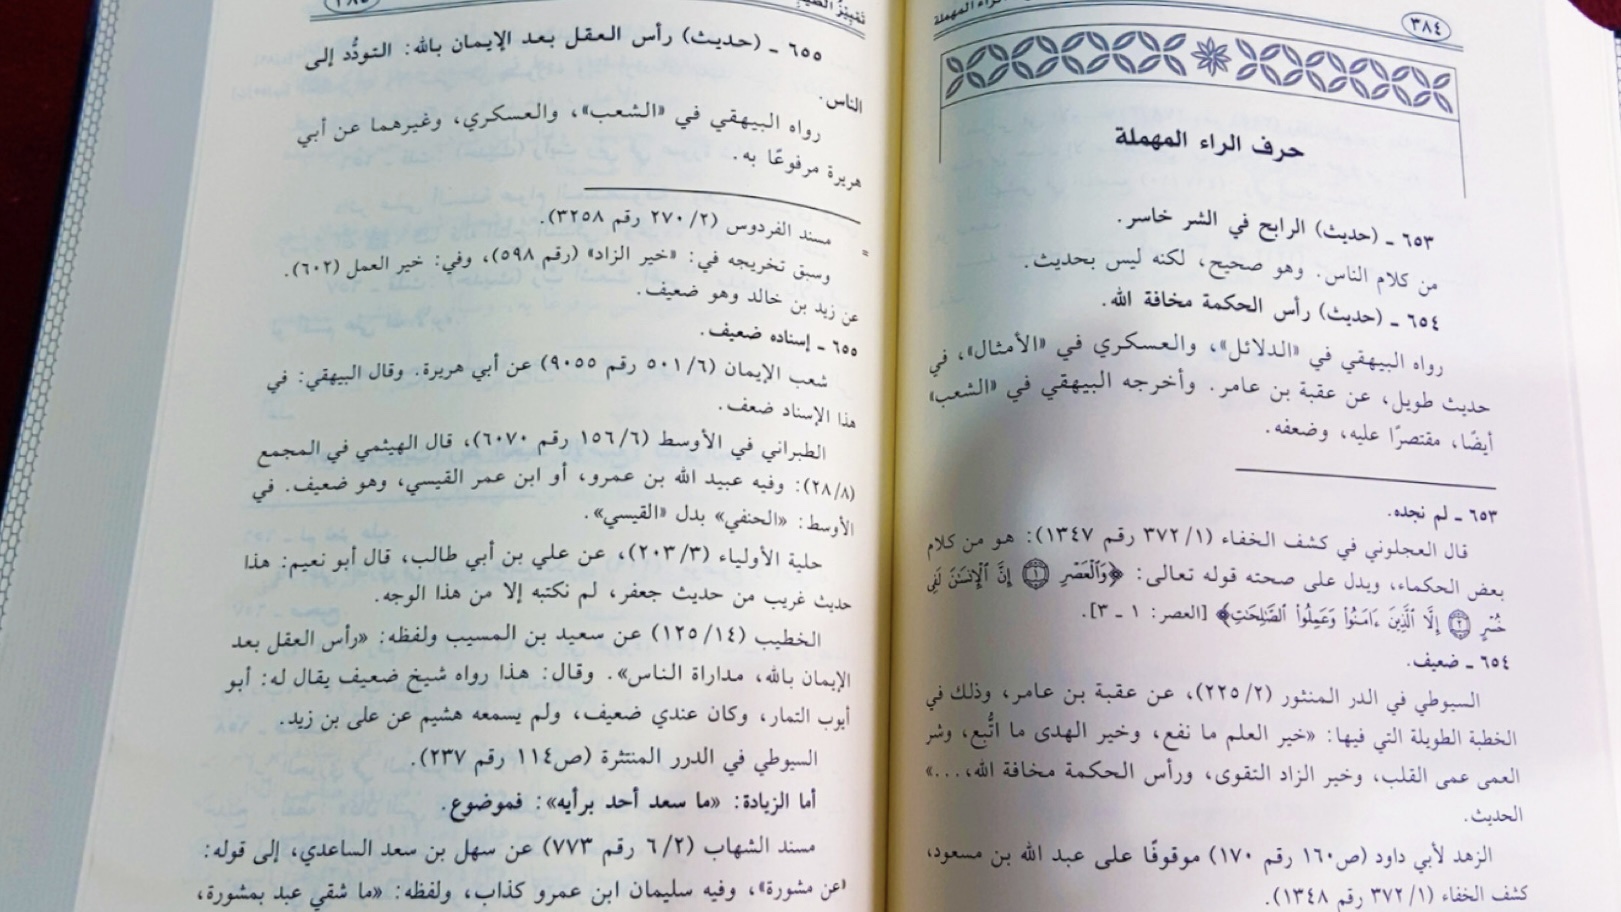 ٣٨٤
الراء المهملة
حرف الراء المهملة
٦٥٣ ـ (حديث) الرابح في الشر خاسر.
من كلام الناس. وهو صحيح، لكنه ليس بحديث.
٦٥٤ ـ (حديث) رأس الحكمة مخافة الله.
رواه البيهقي في «الدلائل»، والعسكري في «الأمثال»، في
حديث طويل، عن عقبة بن عامر. وأخرجه البيهقي في «الشعب»
أيضًا، مقتصرًا عليه، وضعفه.
٦٥٣ ـ لم نجده.
قال العجلوني في كشف الخفاء (٣٧٢/١ رقم ١٣٤٧): هو من كلام
بعض الحكماء، ويدل على صحته قوله تعالى: ﴿وَٱلْعَصْرِ ۝١ إِنَّ ٱلْإِنسَٰنَ لَفِى
خُسْرٍ ۝٢ إِلَّا ٱلَّذِينَ ءَامَنُوا۟ وَعَمِلُوا۟ ٱلصَّٰلِحَٰتِ﴾ [العصر: ١ ـ ٣].
٦٥٤ ـ ضعيف.
السيوطي في الدر المنثور (٢٢٥/٢)، عن عقبة بن عامر، وذلك في
الخطبة الطويلة التي فيها: «خير العلم ما نفع، وخير الهدى ما اتُّبع، وشر
العمى عمى القلب، وخير الزاد التقوى، ورأس الحكمة مخافة الله،...»
الحديث.
الزهد لأبي داود (ص١٦٠ رقم ١٧٠) موقوفًا على عبد الله بن مسعود،
كشف الخفاء (٣٧٢/١ رقم ١٣٤٨).
٣٨٥
تمييز
٦٥٥ ـ (حديث) رأس العقل بعد الإيمان بالله: التودُّد إلى
الناس.
رواه البيهقي في «الشعب»، والعسكري، وغيرهما عن أبي
هريرة مرفوعًا به.
= مسند الفردوس (٢٧٠/٢ رقم ٣٢٥٨).
وسبق تخريجه في: «خير الزاد» (رقم ٥٩٨)، وفي: خير العمل (٦٠٢).
عن زيد بن خالد وهو ضعيف.
٦٥٥ ـ إسناده ضعيف.
شعب الإيمان (٥٠١/٦ رقم ٩٠٥٥) عن أبي هريرة. وقال البيهقي: في
هذا الإسناد ضعف.
الطبراني في الأوسط (١٥٦/٦ رقم ٦٠٧٠)، قال الهيثمي في المجمع
(٢٨/٨): وفيه عبيد الله بن عمرو، أو ابن عمر القيسي، وهو ضعيف. في
الأوسط: «الحنفي» بدل «القيسي».
حلية الأولياء (٢٠٣/٣)، عن علي بن أبي طالب، قال أبو نعيم: هذا
حديث غريب من حديث جعفر، لم نكتبه إلا من هذا الوجه.
الخطيب (١٢٥/١٤) عن سعيد بن المسيب ولفظه: «رأس العقل بعد
الإيمان بالله، مداراة الناس». وقال: هذا رواه شيخ ضعيف يقال له: أبو
أيوب التمار، وكان عندي ضعيف، ولم يسمعه هشيم عن على بن زيد.
السيوطي في الدرر المنتثرة (ص١١٤ رقم ٢٣٧).
أما الزيادة: «ما سعد أحد برأيه»: فموضوع.
مسند الشهاب (٦/٢ رقم ٧٧٣) عن سهل بن سعد الساعدي، إلى قوله:
«عن مشورة»، وفيه سليمان ابن عمرو كذاب، ولفظه: «ما شقي عبد بمشورة،